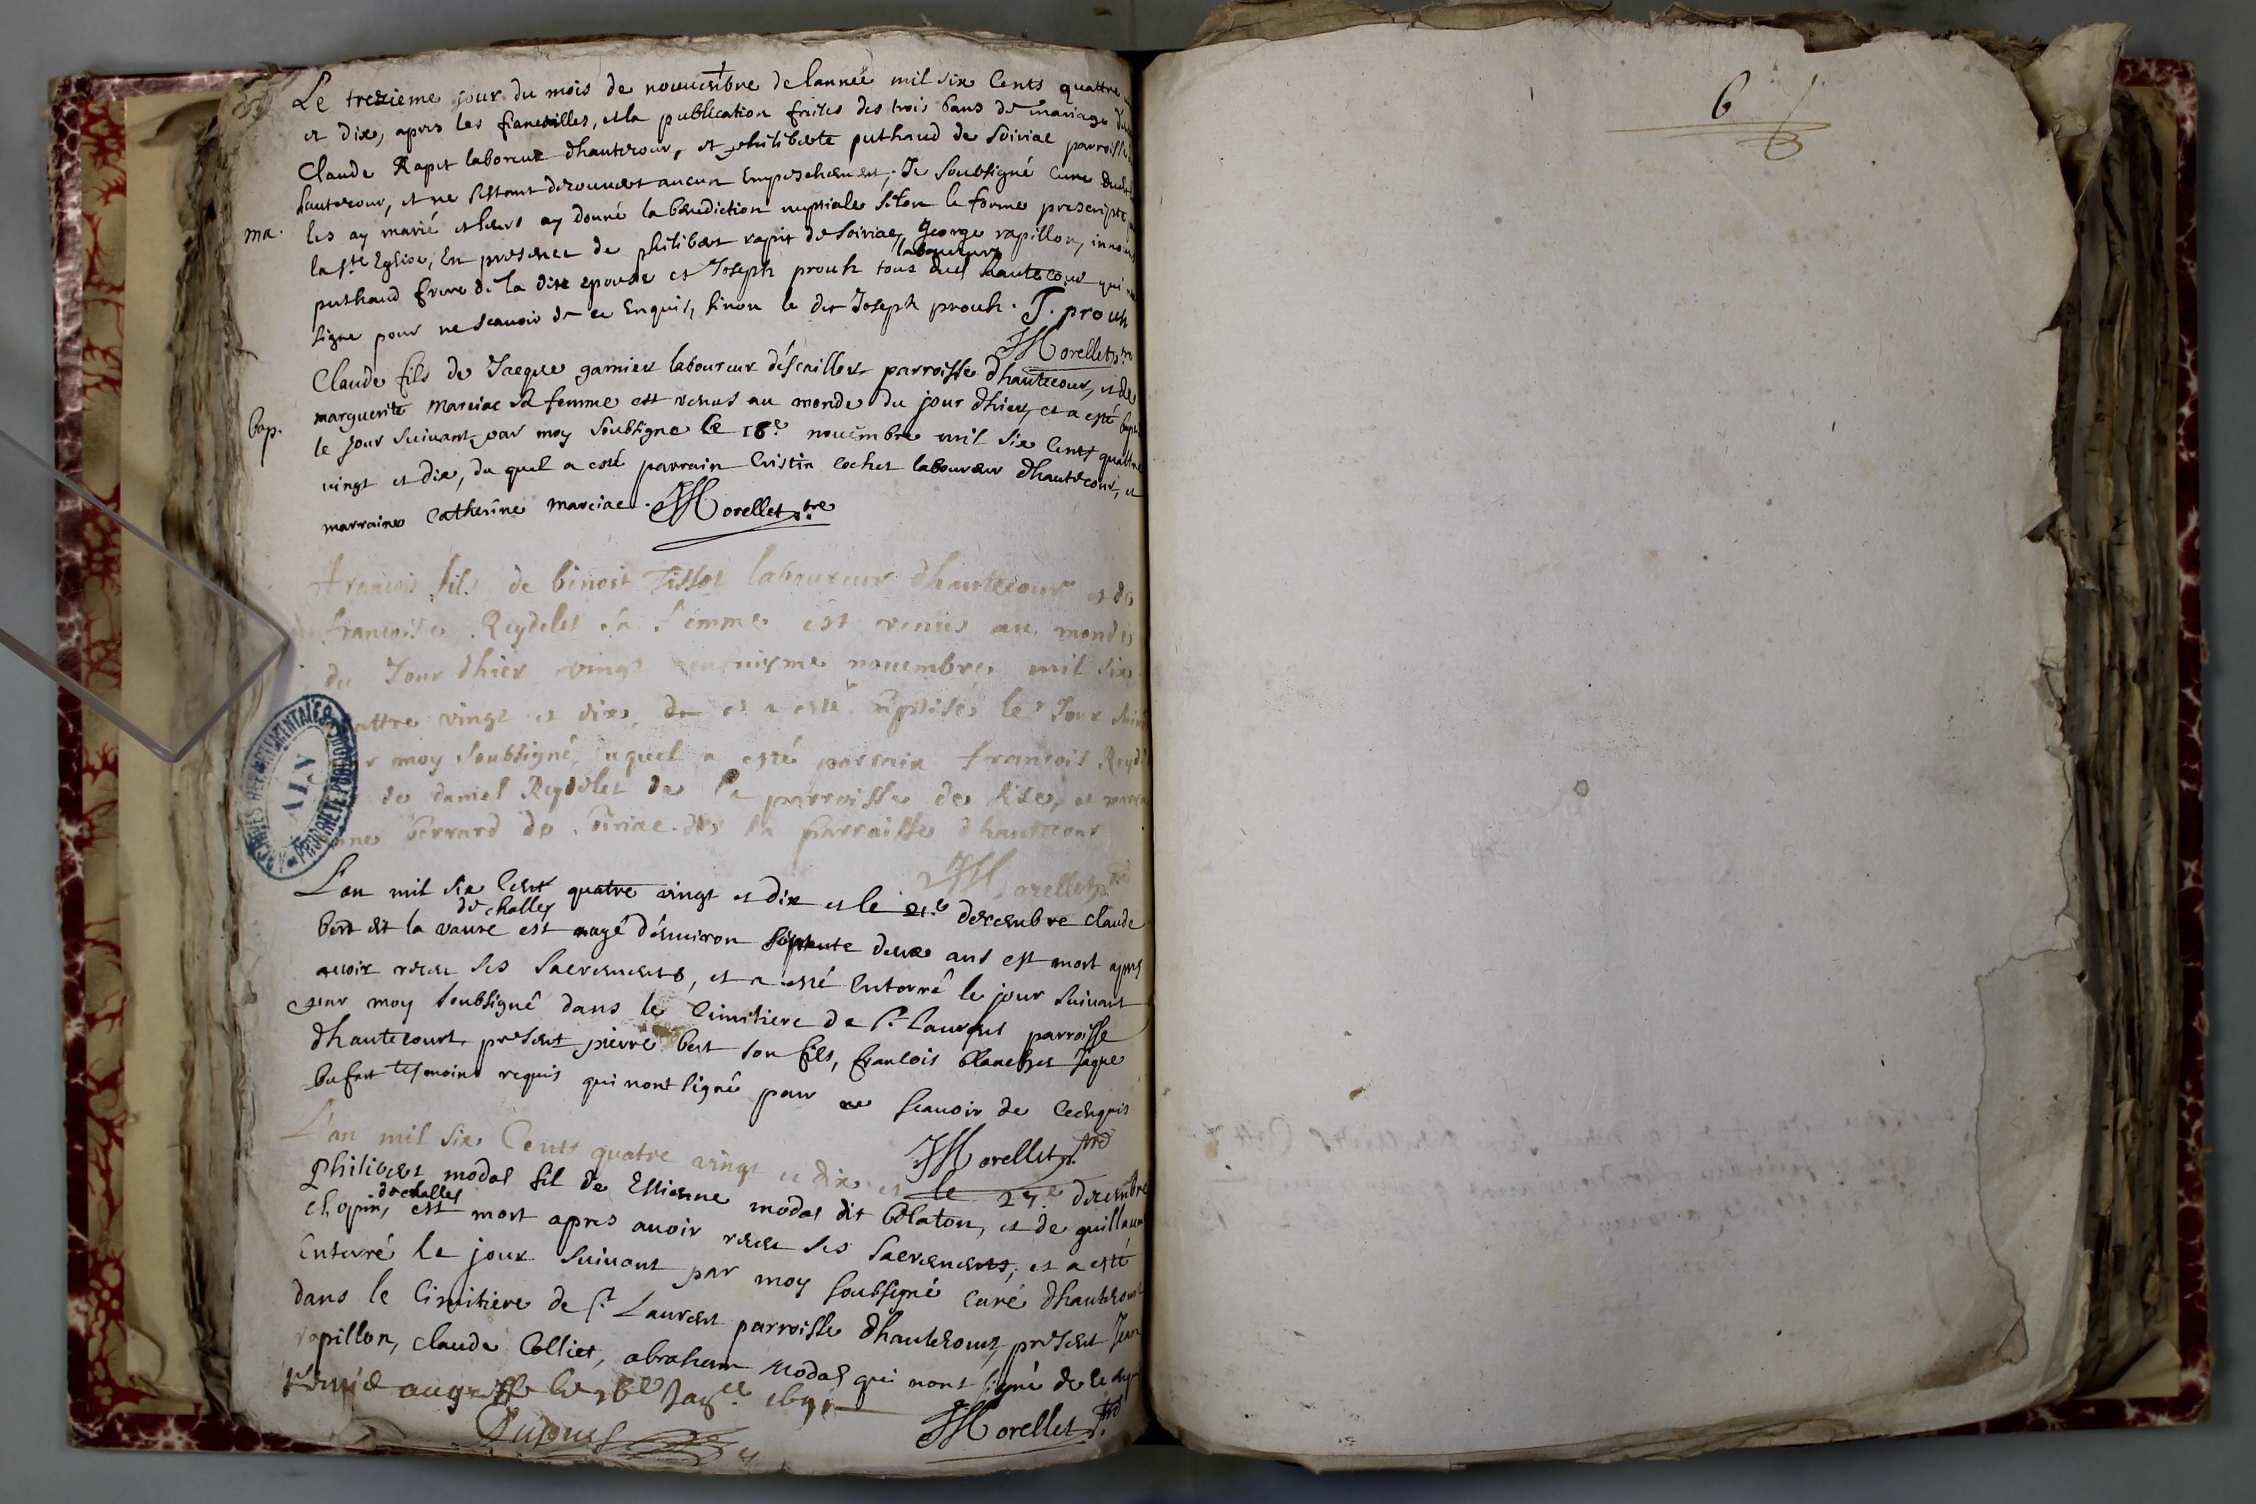 Le trezieme jour du mois de nouembre de lanneé mil six Cents quattre
et dix, apres les fiancailles, et la publication faites des trois bans de mariage
Claude Rapit laboreur dhautecour, et philiberte puthaud de Soiriac parroisse
hautecour, et ne sestant decouuert aucun Empeschement, Je soubsigné Curé
ma.
les ay marié et leurs ay donné la benediction nuptiale selon la forme prescripte
la Ste Eglise, En presence de philibert rapit de Soiriac, George rapillon,
laboureurs
puthaud frere de la dite epouse et Joseph prouh tous dud hautecour qui
signe pour ne scauoir de ce Enquis, sinon le dit Joseph prouh. J. prouh
JMorellet ptre
Claude fils de Jacque garnier laboureur parroisse dhautecour, et de
marguerite Marciac sa femme est venus au monde du jour dhier, et a esté
bap.
le jour suiuant par moy soubsigne le 18e nouembre mil six Cents quattre
vingt et dix, du quel a esté parrain Cristin cochet laboureur dhautecour, et
marraine Catherine marciac. JMorellet ptre
francois fils de benoit Tissot laboureur dhautecour et de
francoise Reydelet sa femme est venus au monde
du Jour dhier vingt nouembre mil six
attre vingt et dix, et a esté le Jour
r moy soubsigné, uquel a esté parrain francois
de daniel Reydelet de la parroisse de
ne berrard de Soiriac de la parroisse dhautecour
JMorellet ptre
ARCHIVES DEPARTEMENTALES
AIN
PROPRIETE PUBLIQUE
L'an mil six Cent quatre vingt et dix et le 21e decembre claude
de challes
bert dit la vaure est aagé d'enuiron septante deux ans est mort apres
auoir receu ses Sacrements, et a esté Enterré le jour suiuant
par moy soubsigné dans le Cimitiere de St Laurent parroisse
dhautecourt, present pierre bert son fils, francois blanchet Jaque
bufart tesmoins requis qui nont signé pour ne scauoir de ce enquis
JMorellet ptre
L'an mil six Cents quatre vingt et dix et le 27e decembre
Philibert modas fil de Estienne modas dit blaton, et de
de challes
chopin, est mort apres auoir receu ses Sacrements, et a esté
Enterré le jour suiuant par moy soubsigné curé dhautecour
dans le Cimitiere de St Laurent parroisse dhautecour, present Jean
rapillon, claude Colliet, abraham Modas qui nont signé de ce
remis au greffe le 1691
Dupuis
JMorellet ptre
6